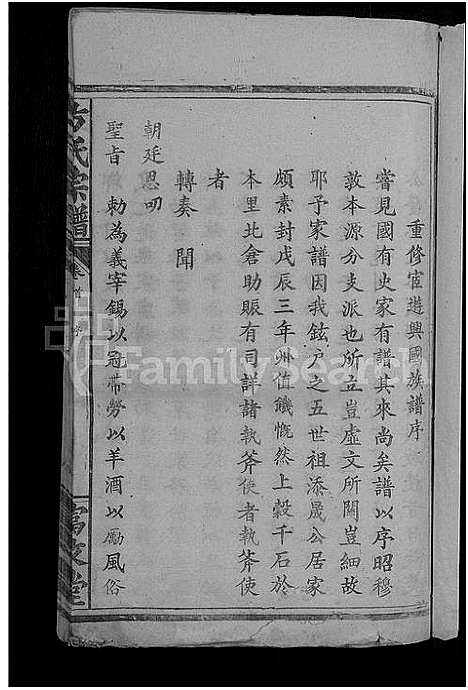 重修宦遊興國族譜序
嘗見國有史家有譜其來尚矣譜以序昭穆
敦本源分支派也所立豈虛文所關豈細故
耶予家譜因我鉉户之五世祖添晟公居家
頗素封戊辰三年州值饑慨然上穀千石於
本里北倉助賑有司詳諸執斧使者執斧使
者
轉奏　聞
朝廷恩叨
聖旨　勅為義宰錫以冠帶勞以羊酒以勵風俗
方氏宗譜
卷首
序
富文堂
FamilySearch